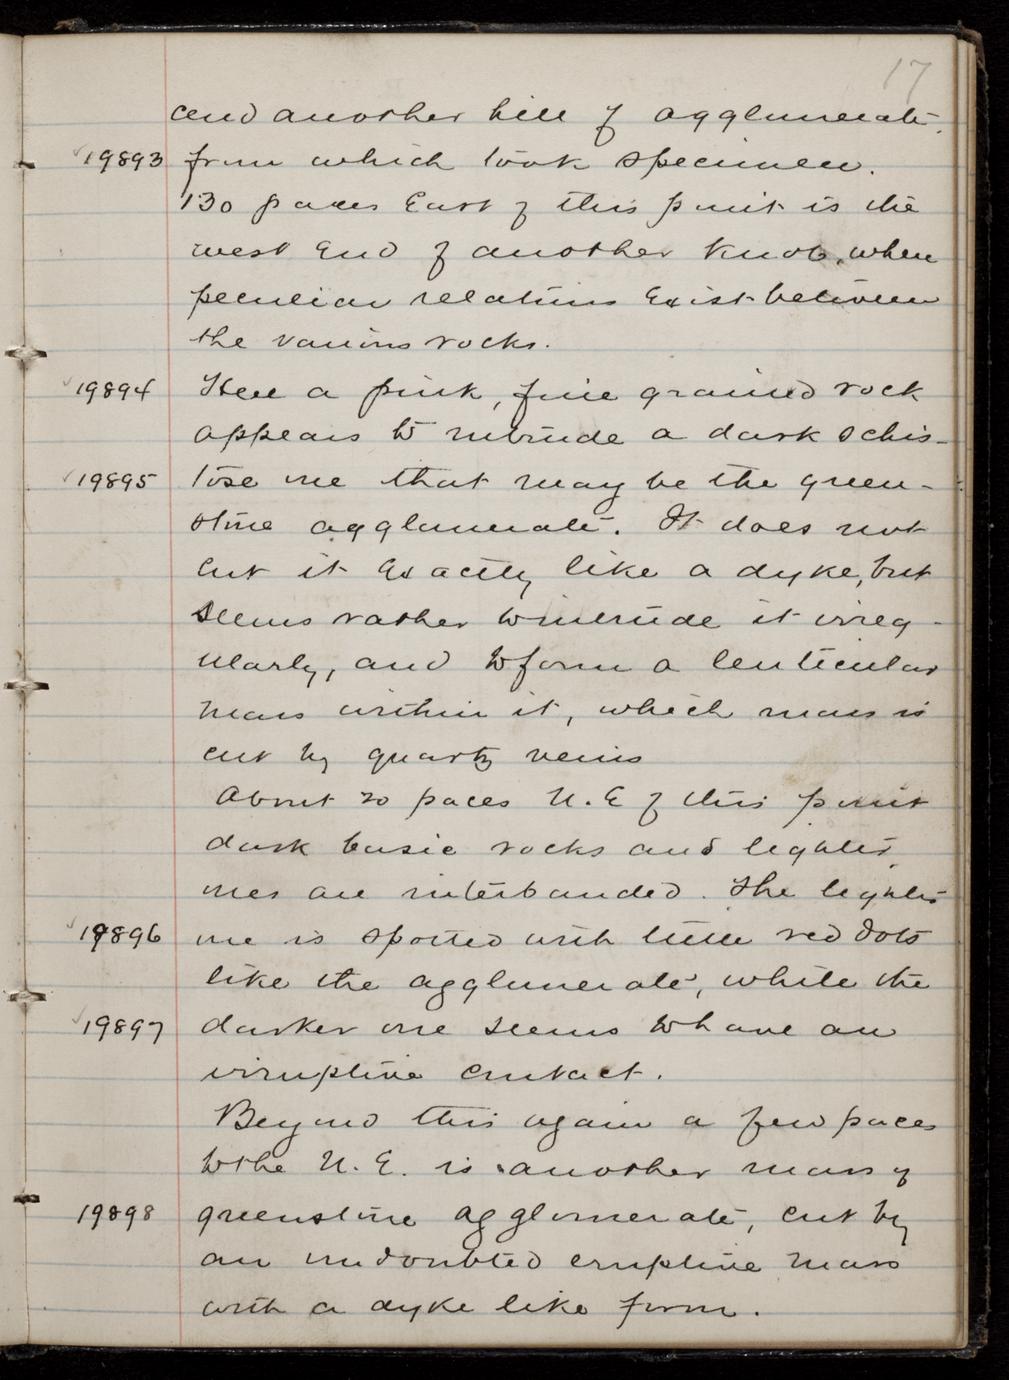 17
and another hill of agglomerate,
19893 from which took specimen.
130 paces East of this point is the
west End of another Knob, where
peculiar relations Exist between
the various rocks.
19894 Here a pink, fine grained rock
appears to intrude a dark schis-
19895 tose one that may be the green-
stone agglomerate. It does not
cut it Exactly like a dyke, but
seems rather to intrude it irreg-
ularly, and to form a lenticular
mass within it, which mass is
cut by quartz veins
About 20 paces N.E of this point
dark basic rocks and lighter
ones are interbanded. The lighter
19896 one is spotted with little red dots
like the agglomerate, while the
19897 darker one seems to have an
irruptive contact.
Beyond this again a few paces
to the N.E. is another mass of
19898 greenstone agglomerate, cut by
an undoubted eruptive mass
with a dyke like form.